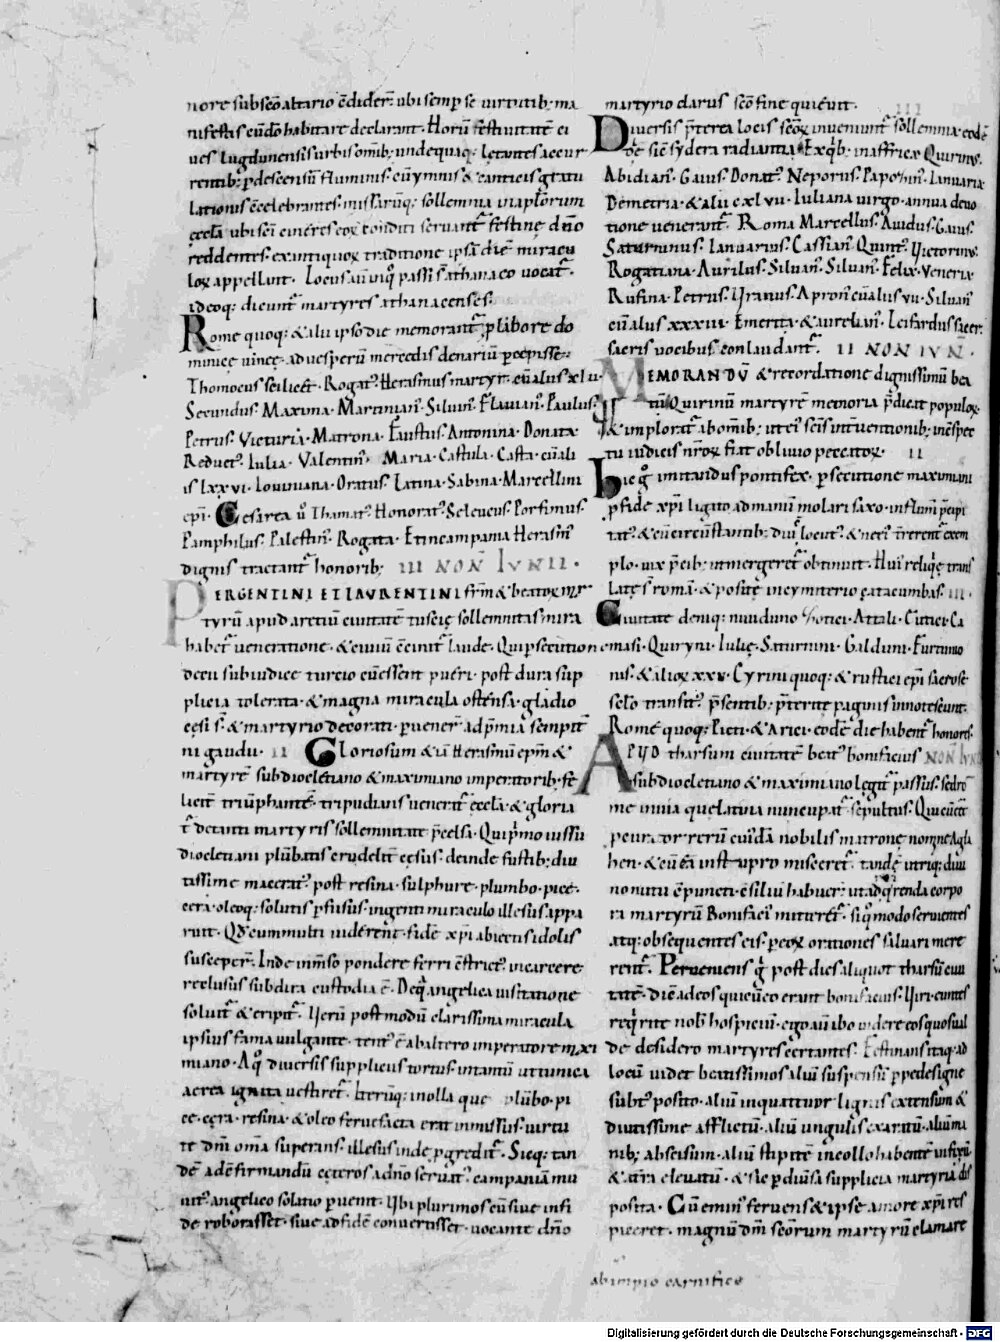 nore sub sc̄o altario c̄dider̄. ubi semp̱ se uirtutib; ma
nifestis eund̄o habitare declarant. Horū festiuitatē ci
ues lugdunensis urbis om̄ib; undequaq; lętantes accur
rentib; p̱ descensū fluminis. cū ymnis & canticis gratu
lationis c̄celebrantes. missarūq; sollemnia in ap̄lorum
ęcc̄la ubi sc̄i cineres eoꝝ conditi seruant᷑ festinę dn̄o
reddentes. ex antiquoꝝ traditione ipsā diē miracu
loꝝ appellant. Locus au in quo passi s̄ athanaco uocat᷑.
ideoq; dicunt᷑ martyres athanacenses.
Rome quoq; & alii ipso die memorant᷑ p̱ labore do
minicę uineę. ad uesperū mercedis denariū p̱cepisse.
Thomeus scilicet. Rogat᷒. Herasmus martyr. cū alus xlu.
Secundus. Maxima. Martinian᷒. Siluin᷒. Flauian᷒. Paulus.
Petrus. Victuria. Matrona. Faustus. Antonina. Donata.
Reduct᷒. Iulia. Valentin᷒. Maria. Castula. Casta. cū ali
is lxxvi. Louiniana. Oratus. Latina. Sabina. Marcellini
epi. Cesarea u᷒ Thamat᷒. Honorat᷒. Seleucus. Porfimus.
Pamphilus. Palestin᷒. Rogata. Et in campania Herasm᷒
dignis tractant᷑ honorib; III NON IVNII.
PERGENTINI ET LAURENTINI fr̄m & beatoꝝ mr̄
tyrū apud aretiū ciuitatē tuscię sollemnitas mira
habet᷑ ueneratione. & ciuiū c̄cinit᷑ laude. Qui p̱secutione
decii sub iudice turcio cū essent pueri. post dura sup
plicia tolerata. & magna miracula ostensa. gladio
cęsi s̄. & martyrio decorati. p̱uener̄ ad p̄mia sempit̄
ni gaudii. II Gloriosum & iā Herasmū ep̄m &
martyrē sub diocletiano & maximiano imperatorib; fe
licit̄ triūphantē. tripudians uenerat᷑ ęcc̄la. & gloria
t᷑ de tanti martyris sollemnitate p̄celsa. Qui p̄mo iussu
diocletiani plūbatis crudelit̄ cęsus. deinde fustib; diu
tissime macerat᷒. post resina. sulphure. plumbo. pice.
cera. oleoq; solutis p̱fusus. ingenti miraculo illesus appa
ruit. Qd̄ cum multi uiderent. fidē xp̄i abiectis idolis
susceper̄. Inde inm̄so pondere ferri c̄strict᷒. in carcere
reclusus sub dira custodia ē. De q̄ angelica uisitatione
soluit᷑ & eripit᷑. Uerū postmodū clarissima miracula
ipsius fama uulgante. tent᷒ ē ab altero imperatore maxi
miano. A quo diuersis suppliciis tortus. in tantū ut tunica
aerea ignita uestiret᷑. Iterūq; in olla que plūbo. pi
ce. cera. resina. & oleo feruefacta erat inmissus. uirtu
te dn̄i om̄a superans. illesus inde p̱greditᷣ. Sicq; tan
dē ad c̄firmandū cęteros a dn̄o seruat᷒. campaniā mu
nit᷒ angelico solatio p̱uenit. Ubi plurimos cū siue in fi
de roborasset. siue ad fidē conuertisset. uocante dn̄o
martyrio clarus sc̄o fine quieuit. III
Diuersis p̄terea locis sc̄oꝝ inueniunt᷑ sollemnia. eodē
die sic sydera radiantia. Ex q̄b; in affrica Quirinus.
Abidian᷒. Gaius. Donat᷒. Neporus. Paposin᷒. Ianuaria
Demetria. & alii cxlvii. Iuliana uirgo. annua deuo
tione uenerant᷑. Roma Marcellus. Auidus. Gaius.
Saturninus. Ianuarius. Cassian᷒. Quint᷒. Uictorinus.
Rogatiana. Aurilus. Siluan᷒. Siluan᷒. Felix. Ueneria
Rufina. Petrus. Uranus. Apron᷒ cū alus vii. Siluan᷒
cū alus xxxiii. Emerita. & aurelian᷒. Leifardus sacer.
sacris uocibus conlaudant᷑. II NON IVN̄.
MEMORANDŪ & recordatione dignissimū bea
tū Quirinū martyrē memoria p̄dicat populoꝝ.
& implorat᷑ ab om̄ib; ut ei᷒ sc̄is int̄uentionib; in c̄spec
tu iudicis nr̄oꝝ fiat obliuio peccatoꝝ. II
Hic g᷒ imitandus pontifex. p̱secutione maximiani
p̱ fide xp̄i ligato ad manū molari saxo. in flum̄ p̄cipi
tat᷒. & cū circūstantib; diu locut᷒. & ne ei᷒ t̄rerent᷑ exem
plo. uix p̄cib; ut mergeret᷑ obtinuit. Hui᷒ reliq̄ę trans
latę s̄ romā. & positę in cymiterio catacumbas. III.
Ciuitate deniq; niuiduno Sotici. Attali. Cutici. Ca
masi. Quirini. Iulię. Saturnini. Galduni. Furtunio
nis. & alioꝝ xxv. Cyrini quoq; & rustici epi sacrose
sc̄lo transit᷒. p̄sentib; p̄terite pagunis innotescunt.
Romę quoq; Picti. & Arici. eodē die habent᷑ honores.
APUD tharsum ciuitatē beat᷒ bonifacius NON IVN
sub diocletiano & maximiano legit᷑ passus. sed ro
me in uia que latina nuncupat᷑. sepultus. Qui cū eēt
pcurator rerū cuiusdā nobilis matronę nomine Agla
hen. & cū ea in stupro misceret᷑. tandē utriq; diui
no nutu c̄puncti. c̄siliū habuer̄. ut ad q̄renda corpo
ra martyrū Bonifaci᷒ mitteret᷑. si quomodo seruientes
atq; obsequentes eis. p̱ eoꝝ orationes saluari mere
rent᷑. Perueniens g᷒ post dies aliquot tharsū ciui
tatē. dixit ad eos qui cū eo erant bonifacius. Uiri euntes
req̄rite nob̄ hospiciū. ego au ibo uidere eos quos ual
de desidero martyres certantes. Festinans itaq; ad
locū. uidet beatissimos aliū suspensū p̱ pede signe
subt᷒ posito. aliū in quattuor lignis extensum &
diutissime afflictū. aliū ungulis exaratū. aliū ma
nib; abscisum. aliū stipitē in collo habentē infixū
& a t̄ra eleuatū. & sic p̱ diuersa supplicia martyria dis
posita. Cū enim feruens & ipse amore xp̄i res
piceret. magnū dn̄m sc̄orum martyrū clamare
ab impio carnifice
Digitalisierung gefördert durch die Deutsche Forschungsgemeinschaft - DFG